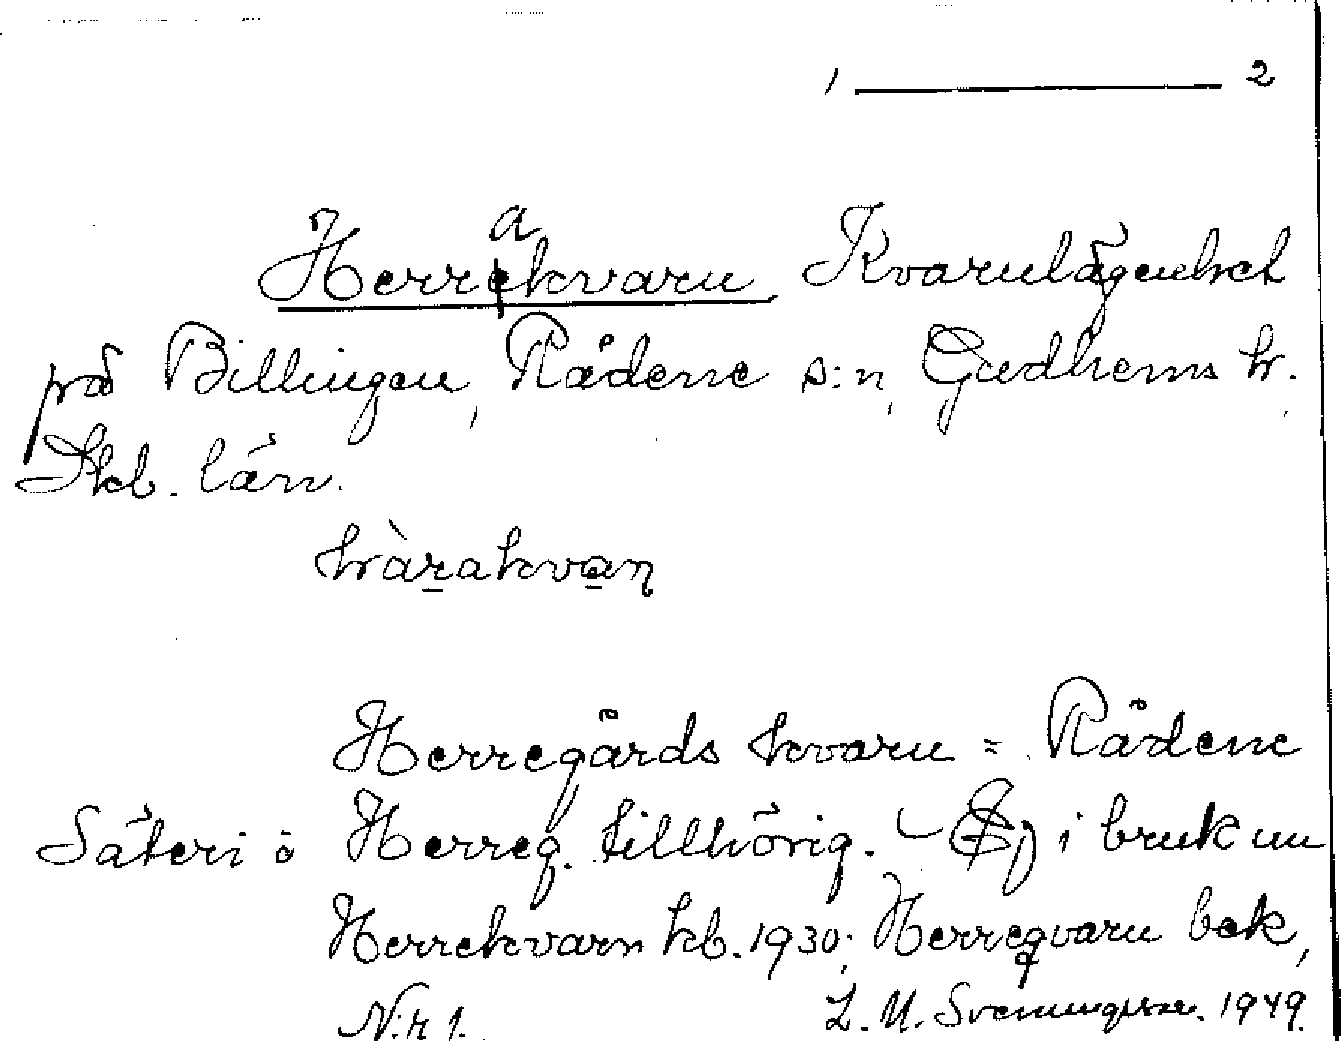 1 ———— 2
Herrakvarn Kvarnlägenhet
på Billingen, Rådene s:n, Gudhems hr.
Skb. län.
hàrakvaṇ
Herregårds kvarn = Rådene
Säteri o Herreg. tillhörig. – Ej i bruk nu
Herrekvarn kb. 1930; Herreqvarn bek,
N:r 1. L. M. Svenungsson. 1949.